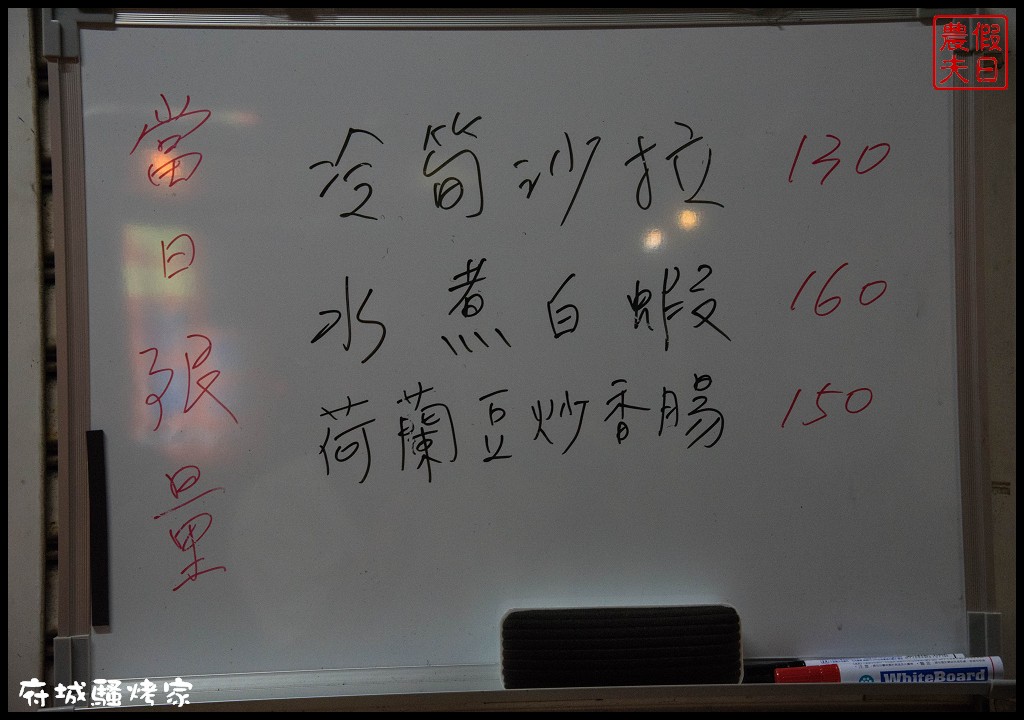 當日限量
冷筍沙拉 130
水煮白蝦 160
荷蘭豆炒香腸 150
假日農夫
WhiteBoard
府城騷烤家